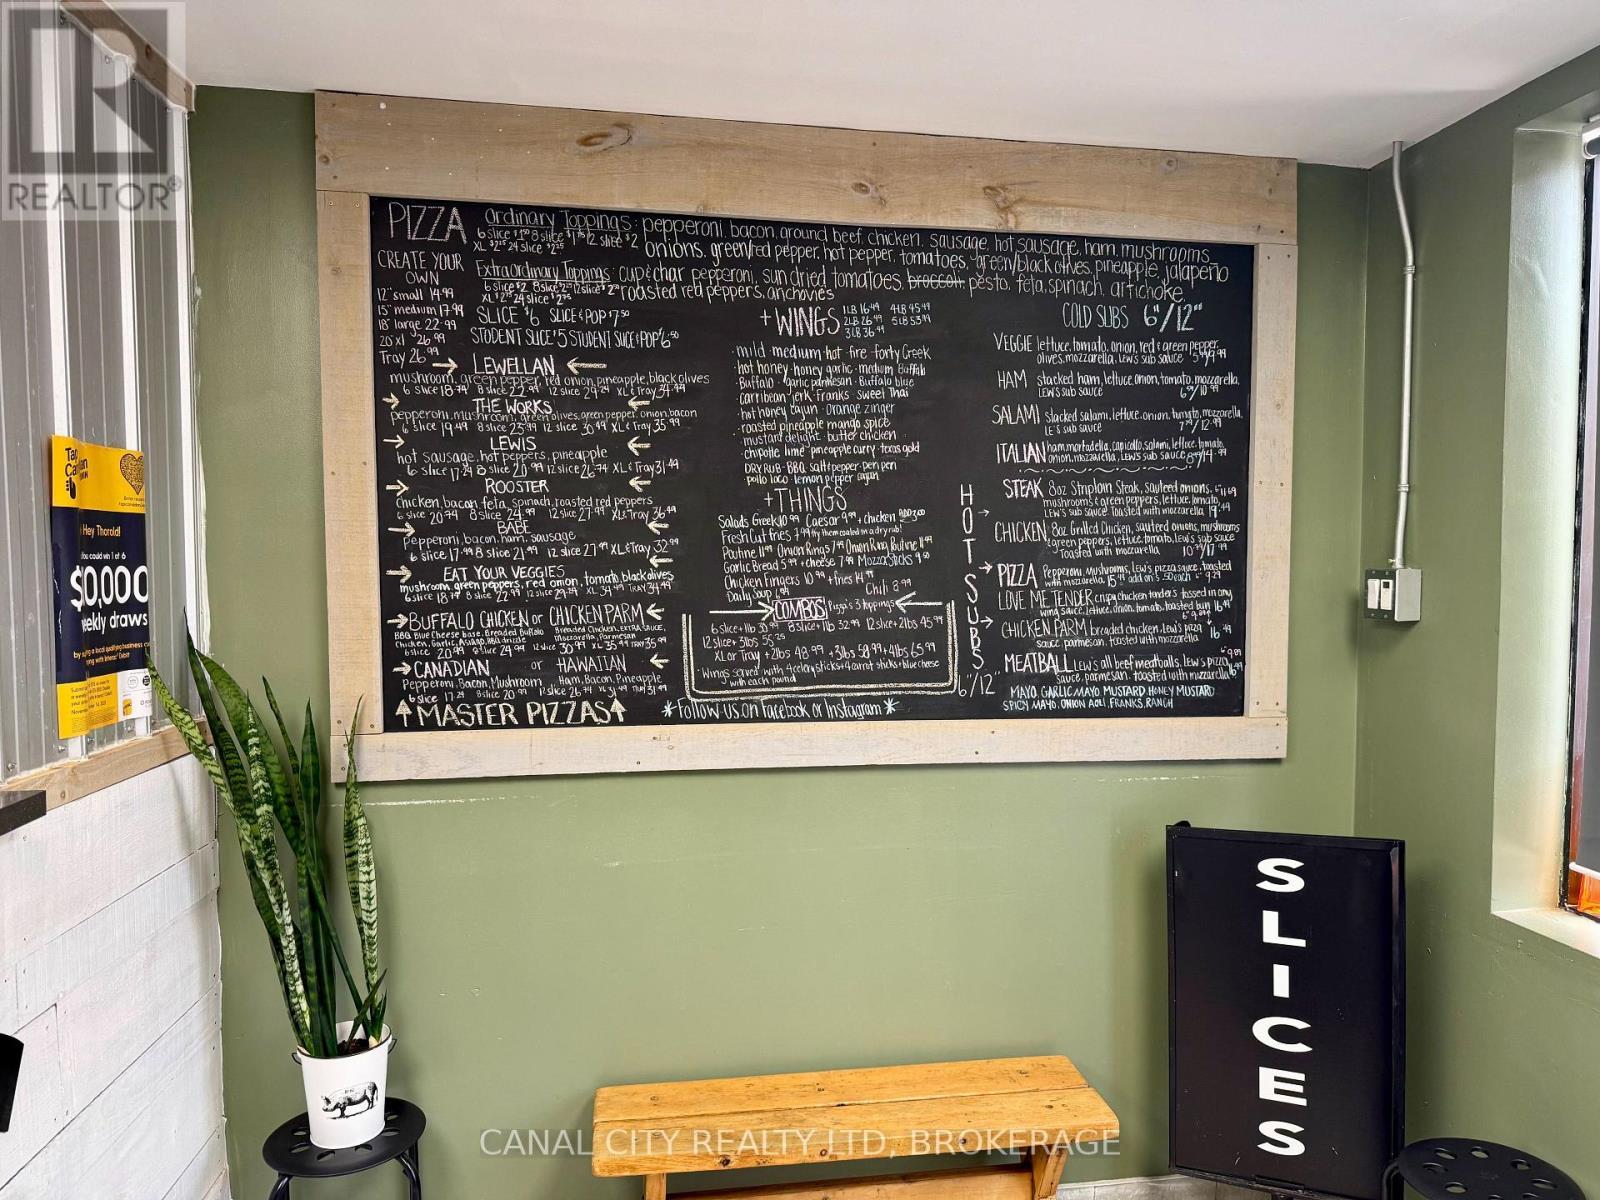 REALTOR®
PIZZA
Ordinary Toppings: pepperoni, bacon, ground beef, chicken, sausage, hot sausage, ham, mushrooms
6 slice $1.50 8 slice $1.75 12 slice $2
XL $2.25 24 slice $2.25
onions, green/red pepper, hot pepper, tomatoes, green/black olives, pineapple, jalapeño
Extraordinary Toppings: cup & char pepperoni, sun dried tomatoes, broccoli, pesto, feta, spinach, artichoke,
6 slice $2
roasted red peppers, anchovies
CREATE YOUR
OWN
12" small 14.99
15" medium 17.99
18" large 22.99
20 xl $26.99
Tray 26.99
SLICE $6 SLICE & POP $7.50
STUDENT SLICE $5 STUDENT SLICE & POP $6.50
LEWELLAN
mushroom, green pepper, red onion, pineapple, black olives
6 slice 18.74 8 slice 22.99 12 slice 29.24 XL & Tray 34.49
THE WORKS
pepperoni, mushroom, green olives, green pepper, onion, bacon
6 slice 19.49 8 slice 23.99 12 slice 30.49 XL & Tray 35.99
LEWIS
hot sausage, hot peppers, pineapple
6 slice 17.24 8 slice 20.99 12 slice 26.74 XL & Tray 31.49
ROOSTER
Chicken, bacon, feta, spinach, roasted red peppers
6 slice 20.74 8 slice 24.99 12 slice 27.99 XL & Tray 36.49
BABE
Pepperoni, bacon, ham, sausage
6 slice 17.99 8 slice 21.99 12 slice 27.99 XL & Tray 32.99
EAT YOUR VEGGIES
mushroom, green peppers, red onion, tomato, black olives
6 slice 18.74 8 slice 22.99 12 slice 29.24 XL & Tray 34.49
BUFFALO CHICKEN or CHICKEN PARM
BBQ, Blue Cheese base, Breaded Buffalo
Chicken, Garlic,
Breaded Chicken, EXTRA SAUCE,
Mozzarella, Parmesan
6 slice 20.99 8 slice 24.99 12 slice 30.99 XL 35.99 TRAY 35.99
CANADIAN or HAWAIIAN
Pepperoni, Bacon, Mushroom Ham, Bacon, Pineapple
6 slice 17.24 8 slice 20.99 12 slice 26.74 XL 31.49 TRAY 31.49
MASTER PIZZAS
+ WINGS
1LB 16.49 4LB 45.49
2LB 26.99 5LB 53.99
3LB 36.99
· mild · medium · hot · fire · forty Creek
· hot honey · honey garlic · medium Buffalo
· Buffalo · garlic parmesan · Buffalo blue
· carribean jerk · Franks · sweet Thai
· hot honey cajun · orange zinger
· roasted pineapple mango spice
· mustard delight · butter chicken
· chipotle lime · pineapple curry · texas gold
DRY RUB · BBQ · salt & pepper · peri peri
pollo loco · lemon pepper · cajun
+ THINGS
Salads Greek 10.99 Caesar 9.99 + chicken ADD 3.00
Fresh Cut Fries 7.99 try them coated in a dry rub!
Poutine 11.99 Onion Rings 7.99 Onion Ring Poutine 11.99
Garlic Bread 5.99 + cheese 7.99 Mozza Sticks 9.50
Chicken Fingers 10.99 + fries 14.99
Daily Soup 6.99 Chili 8.99
COMBOS Pizza's 3 toppings
6 slice + 1lb 30.99 8 slice + 1lb 32.99 12 slice + 2lbs 45.99
12 slice + 3lbs 55.25
XL or Tray + 2lbs 48.99 + 3lbs 58.99 + 4lbs 65.99
· Wings served with 4 celery sticks & 4 carrot sticks & blue cheese
with each pound
*Follow us on Facebook or Instagram*
COLD SUBS 6"/12"
VEGGIE lettuce, tomato, onion, red & green pepper,
olives, mozzarella, Lew's sub sauce 5.99/9.99
HAM stacked ham, lettuce, onion, tomato, mozzarella,
LEW'S sub sauce 6.99/10.99
SALAMI stacked salami, lettuce, onion, tomato, mozzarella,
LE's sub sauce 7.99/12.99
ITALIAN ham, mortadella, capicollo, salami, lettuce, tomato,
onion, mozzarella, LEW'S sub sauce 8.99/14.99
HOT SUBS 6"/12"
STEAK 8oz Striploin Steak, sauteed onions,
mushrooms & green peppers, lettuce, tomato,
LEW's sub sauce. Toasted with mozzarella
CHICKEN 8oz Grilled Chicken, sauteed onions, mushrooms
& green peppers, lettuce, tomato, Lew's sub sauce
Toasted with mozzarella 10.99/17.99
PIZZA Pepperoni, Mushrooms, Lew's pizza sauce, toasted
with mozzarella 15.49 add on's .50 each
LOVE ME TENDER crispy chicken tenders tossed in any
wing sauce, lettuce, onion, tomato, toasted bun 16.49
CHICKEN PARM breaded chicken, Lew's pizza
sauce, parmesan, toasted with mozzarella 16.49
MEATBALL Lew's all beef meatballs, Lew's pizza
sauce, parmesan, toasted with mozzarella
MAYO, GARLIC MAYO, MUSTARD, HONEY MUSTARD
SPICY MAYO, ONION AOLI, FRANKS, RANCH
Hey Thorold!
You could win 1 of 6
$10,000
weekly draws
SLICES
CANAL CITY REALTY LTD, BROKERAGE